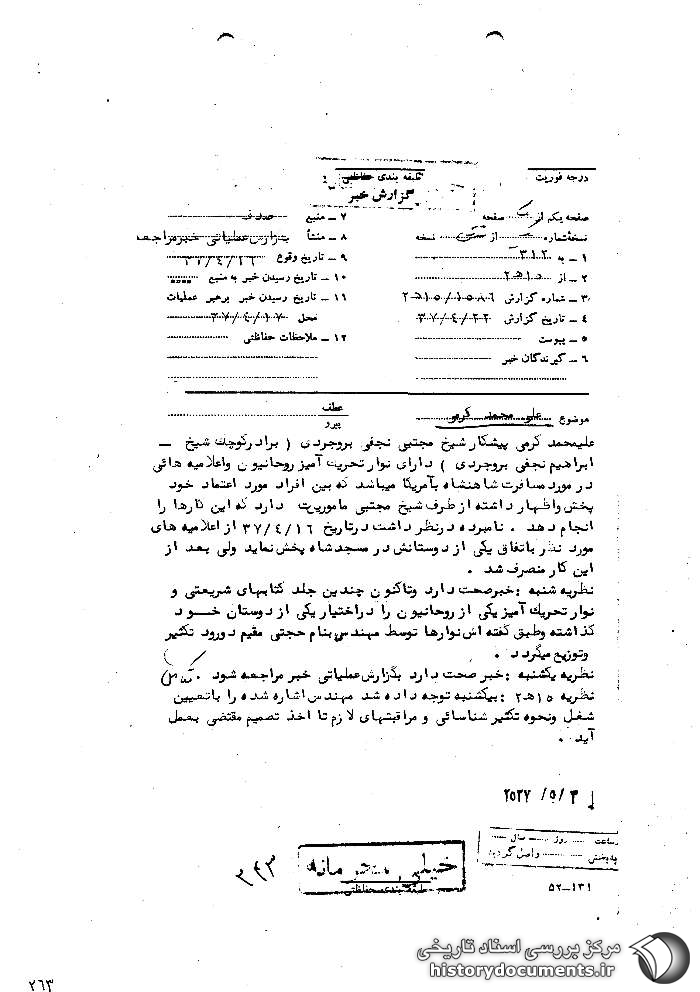 درجه فوریت
طبقه بندی حفاظتی :
گزارش خبر
صفحه یکم از صفحه
نسخه شماره از نسخه
۱ ـ به ۳۱۲
۲ ـ از ۱۵هـ۲
۳ ـ شماره گزارش ۱۵۸۶/۱۵هـ۲
۴ ـ تاریخ گزارش ۳۷/۴/۲۲
۵ ـ پیوست
۶ ـ گیرندگان خبر
۷ ـ منبع صدف
۸ ـ منشأ بگزارش عملیاتی خبر مراجعه
۹ ـ تاریخ وقوع ۳۷/۴/۱۶
۱۰ ـ تاریخ رسیدن خبر به منبع
۱۱ ـ تاریخ رسیدن خبر برهبر عملیات
محل ۳۷/۴/۱۷
۱۲ ـ ملاحظات حفاظتی
موضوع علی محمد کرمی
عطف
پیرو
علیمحمد کرمی پیشکار شیخ مجتبی نجفی بروجردی ( برادر کوچک شیخ ـ
ابراهیم نجفی بروجردی ) دارای نوار تحریک آمیز روحانیون واعلامیه هائی
در مورد مسافرت شاهنشاه بآمریکا میباشد که بین افراد مورد اعتماد خود
پخش واظهار داشته از طرف شیخ مجتبی ماموریت دارد که این کارها را
انجام دهد . نامبرده درنظر داشت درتاریخ ۳۷/۴/۱۶ از اعلامیه های
مورد نظر باتفاق یکی از دوستانش در مسجد شاه پخش نماید ولی بعد از
این کار منصرف شد .
نظریه شنبه : خبرصحت دارد وتاکنون چندین جلد کتابهای شریعتی و
نوار تحریک آمیز یکی از روحانیون را دراختیار یکی از دوستان خود
گذاشته وطبق گفته اش نوارها توسط مهندس بنام حجتی مقیم دورود تکثیر
وتوزیع میگردد .
نظریه یکشنبه : خبر صحت دارد بگزارش عملیاتی خبر مراجعه شود .
نظریه ۱۵هـ۲ : بیکشنبه توجه داده شد مهندس اشاره شده را باتعیین
شغل ونحوه تکثیر شناسائی و مراقبتهای لازم تا اخذ تصمیم مقتضی بعمل
آید .
۲۵۳۷ /۵/۳
ساعت روز سال
به بخش واصل گردید
۵۲-۱۳۱
خیلی محرمانه
طبقه بندی حفاظتی
۳۴۳
مرکز بررسی اسناد تاریخی
historydocuments.ir
۲۶۳